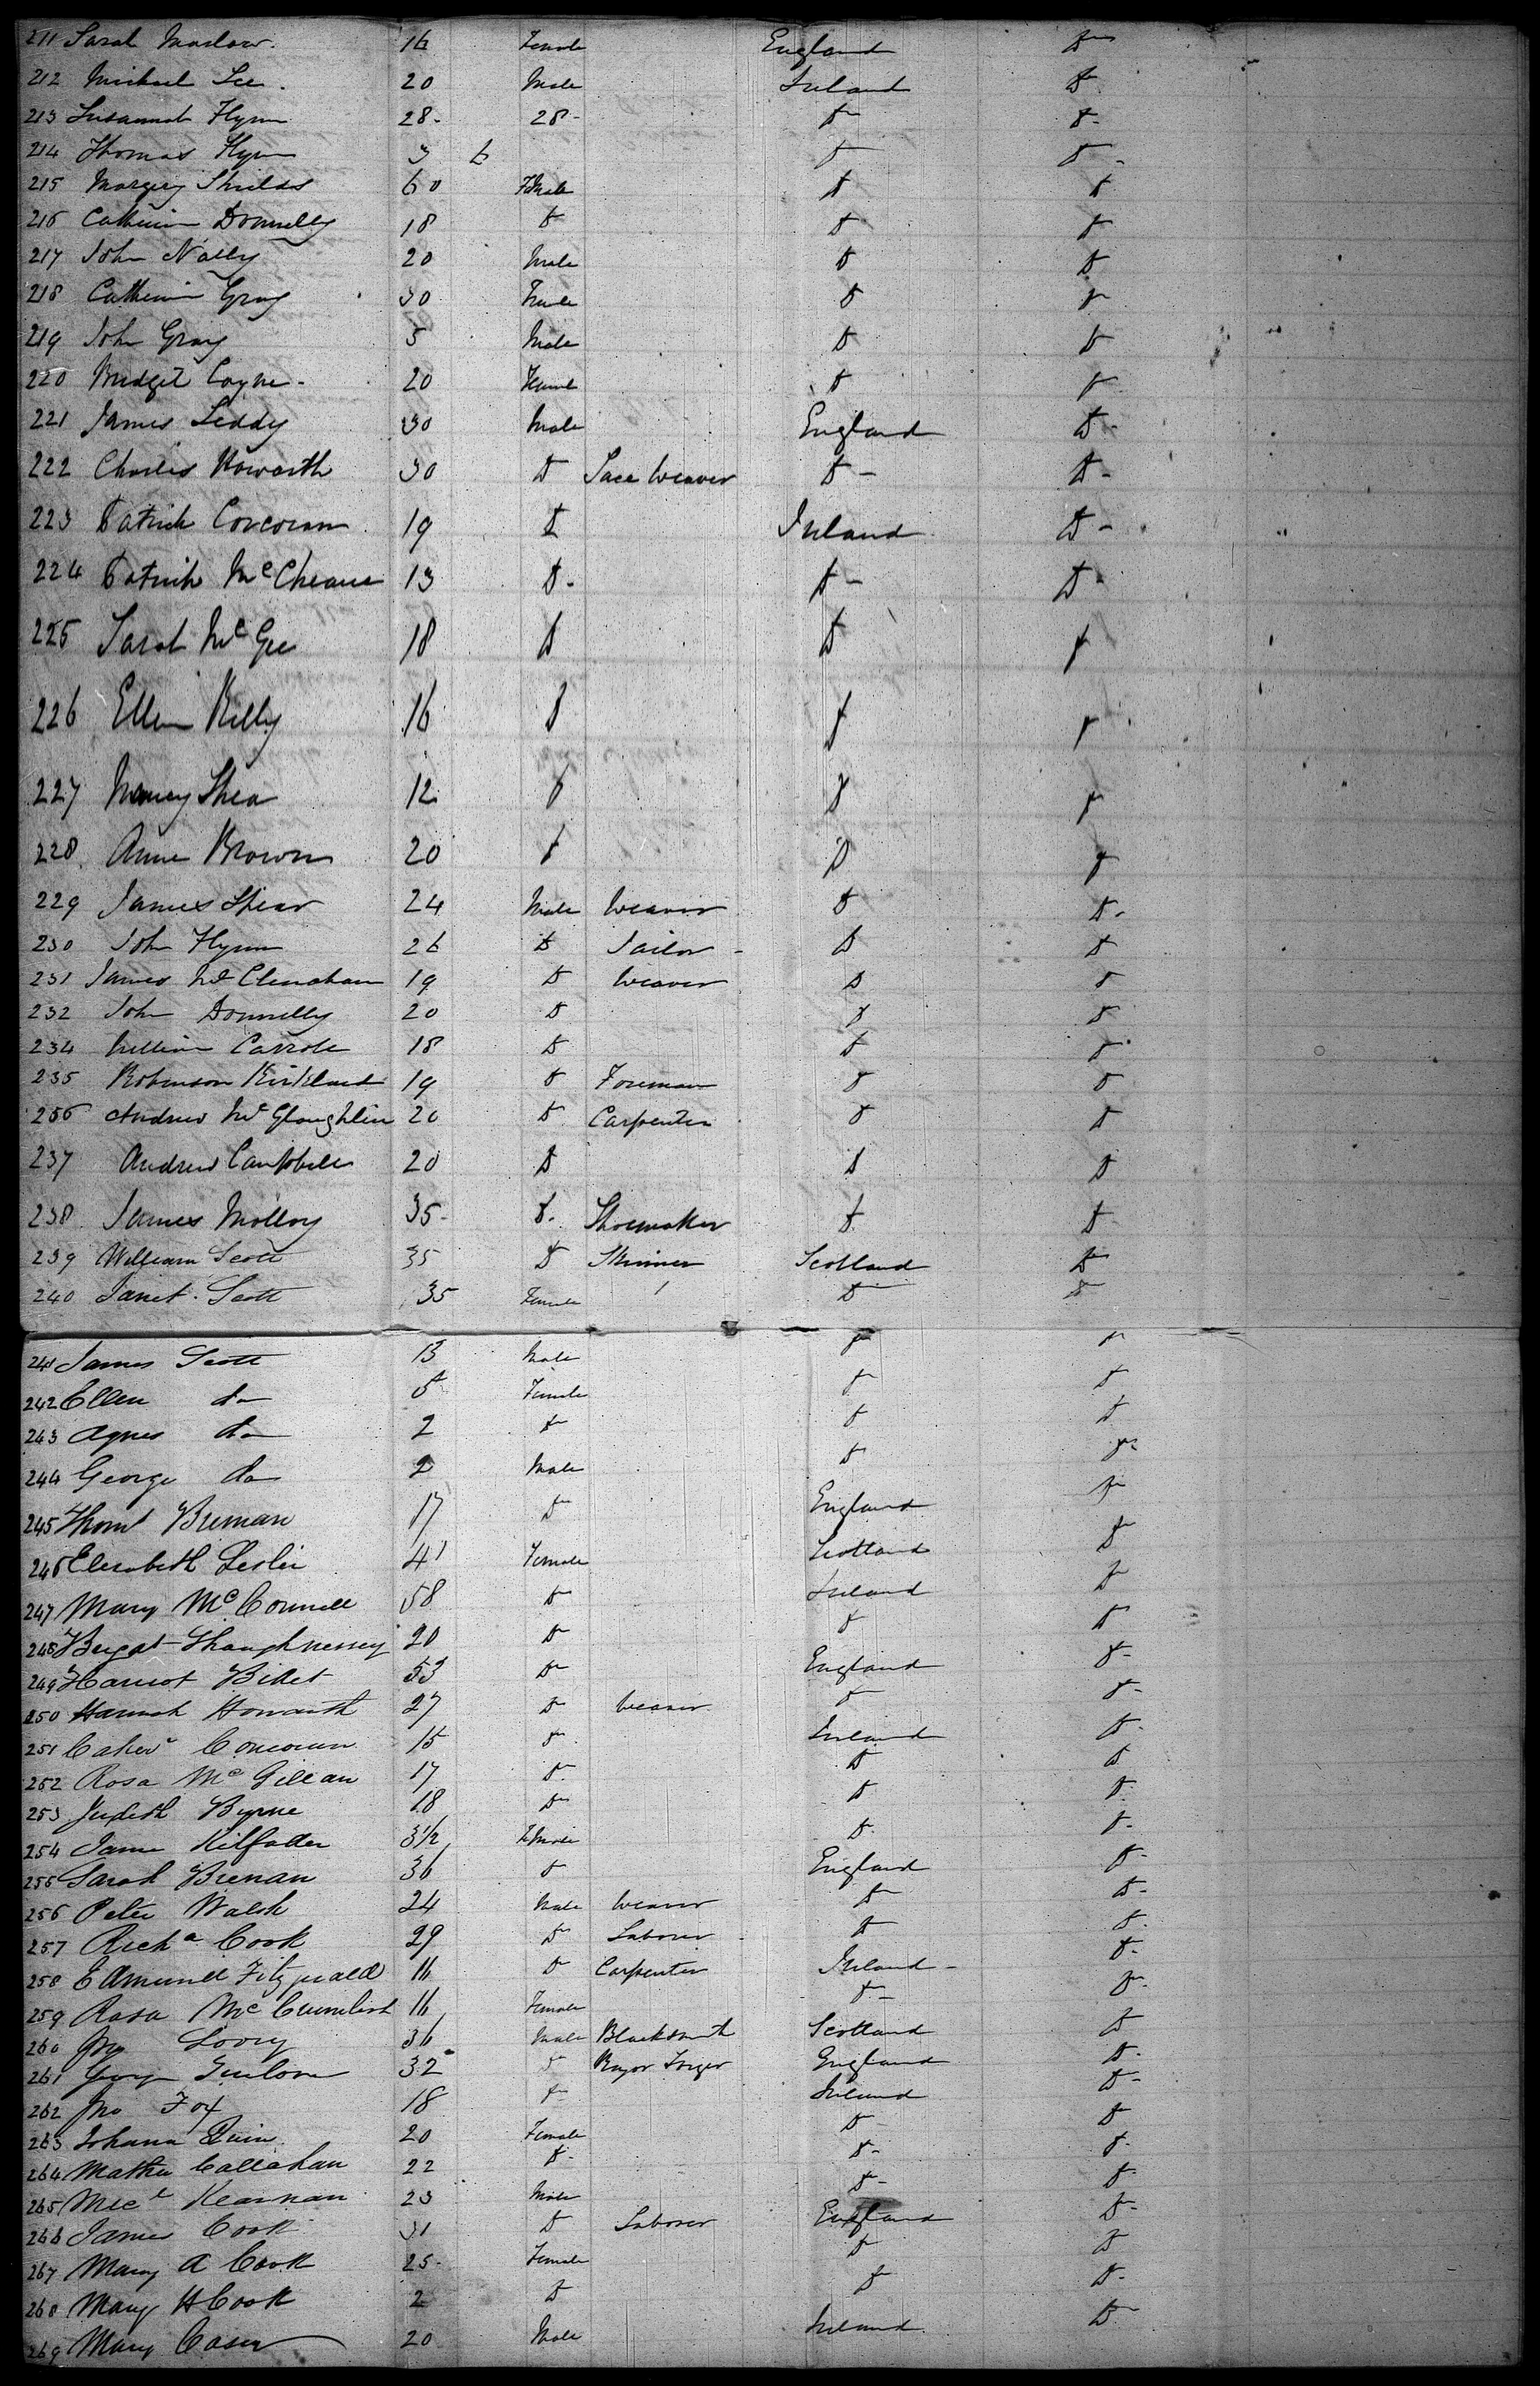 211 Sarah Marlow. 16 Female England Do
212 Michael Lee. 20 Male Ireland Do
213 Susannah Flynn 28- 28- Do Do
214 Thomas Flynn 3 6 Do Do
215 Margery Shields 60 Female Do Do
216 Catherine Donnelly 18 Do Do Do
217 John Nally 20 Male Do Do
218 Catherine Gray 30 Female Do Do
219 John Gray 5 Male Do Do
220 Bridget Coyne- 20 Female Do Do
221 James Leddy 30 Male England Do
222 Charles Howarth 30 Do Lace Weaver Do Do
223 Patrick Corcoran 19 Do Ireland Do
224 Patrick 13 Do Do Do
225 Sarah McGee 18 Do Do Do
226 Ellen Kelly 16 Do Do Do
227 Nancy Shea 12 Do Do Do
228 Anne Brown 20 Do Do Do
229 James Spear 24 Male Weaver Do Do
230 John Flynn 26 Do Tailor Do Do
231 James McClenahan 19 Do Weaver Do Do
232 John Donnelly 20 Do Do Do
234 William Carrole 18 Do Do Do
235 Robinson Kirkland 19 Do Foreman Do Do
236 Andrew McGloughlin 20 Do Carpenter Do Do
237 Andrew Campbell 20 Do Do Do
238 James Molloy 35- Do Shoemaker Do Do
239 William Scott 35 Do Skinner Scotland Do
240 Janet Scott 35 Female Do Do
241 James Scott 13 Male Do Do
242 Ellen do 5 Female Do Do
243 Agnes do 2 Do Do Do
244 George do 2 Male Do Do
245 Thomas Brenan 17 Do England Do
246 Elizabeth Leslie 41 Female Scotland Do
247 Mary McConnell 58 Do Ireland Do
248 Shaughnessey 20 Do Do Do
249 Harriot 53 Do England Do
250 Hannah Howarth 27 Do Weaver Do Do
251 Corcoran 15 Do Ireland Do
252 Rosa McGillan 17 Do Do Do
253 Judith Byrne 18 Do Do Do
254 Jane 3½ Female Do Do
255 Sarah Brenan 36 Do England Do
256 Peter Walsh 24 Male Weaver Do Do
257 Richd Cook 29 Do Laborer Do Do
258 Edmund Fitzgerald 16 Do Carpenter Ireland Do
259 Rosa McCrumlish 16 Female Do Do
260 Jno 36 Male Blacksmith Scotland Do
261 George 32 Do Razor Forger England Do
262 Jno Fox 18 Do Ireland Do
263 Johana Quin 20 Female Do Do
264 Mathew Callahan 22 Do Do Do
265 Micl Kearnan 23 Male Do Do
266 James Cook 31 Do Laborer England Do
267 Mary A Cook 25- Female Do Do
268 Mary H Cook 2 Do Do Do
269 Mary Casey 20 Male Ireland Do